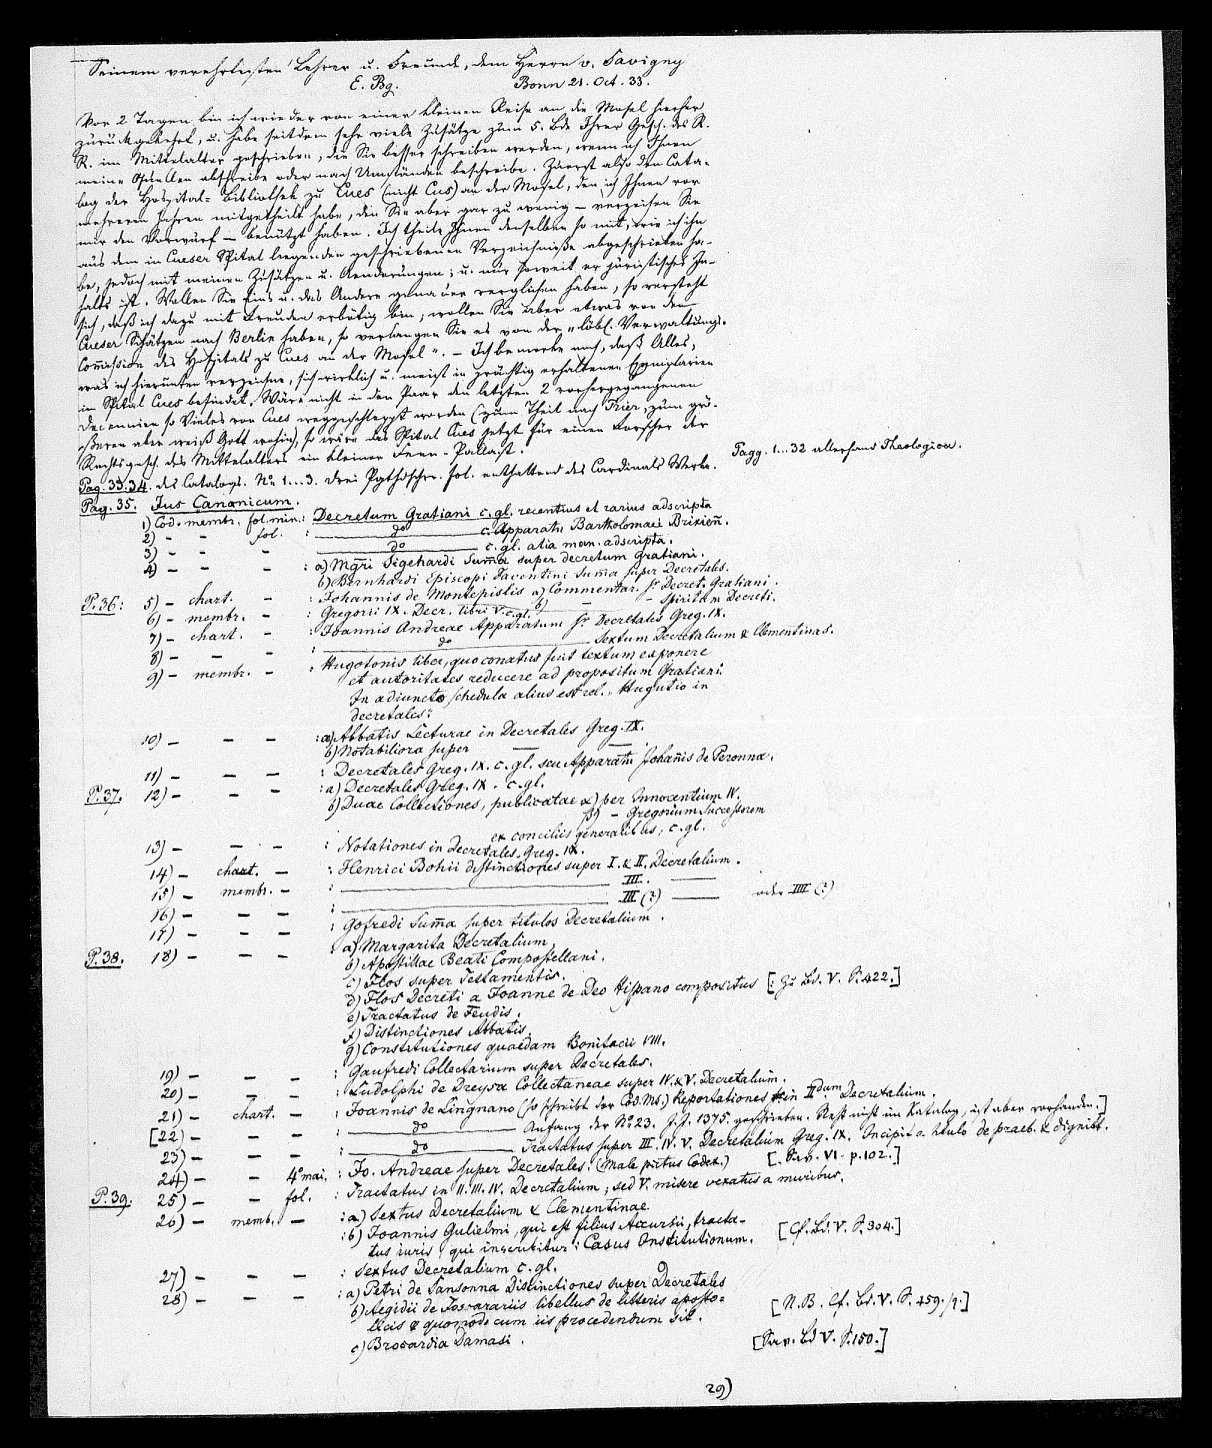 Seinem verehrtesten Lehrer u. Freunde, dem Herrn v. Savigny
E. Bg. Bonn 21. Oct. 33.
Vor 2 Tagen bin ich wieder von einer kleinen Reise an die Mosel hierher
zurückgekehrt, u. habe seitdem sehr viele Zusätze zum 5. Bde Ihrer Gesch. des R.
R. im Mittelalter geschrieben, die Sie besser schreiben werden, wenn ich Ihnen
meine Quellen abschreibe oder nach Umständen beschreibe. Zuerst also den Cata-
log der Hospital-Bibliothek zu Cues (nicht Cus) an der Mosel, den ich Ihnen vor
mehreren Jahren mitgetheilt habe, den Sie aber gar zu wenig — verzeihen Sie
mir den Vorwurf — benützt haben. Ich theile Ihnen denselben so mit, wie ich ihn
aus dem in Cueser Spital liegenden geschriebenen Verzeichnisse abgeschrieben ha-
be, jedoch mit meinen Zusätzen u. Aenderungen; u. nur soweit er juristisches In-
halts ist. Wollen Sie Eins u. das Andere genauer verglichen haben, so versteht
sich, daß ich dazu mit Freuden erbötig bin; wollen Sie aber etwas von den
Cueser Schätzen nach Berlin haben, so verlangen Sie es von der „löbl. Verwaltungs-
Com̄ission des Hospitals zu Cues an der Mosel“. — Ich bemerke noch, daß Alles,
was ich hierunten verzeichne, sich wirklich u. meist in prächtig erhaltenen Exemplarien
im Spital Cues befindet. Wäre nicht in den Paar den letzten 2 vorhergegangenen
Decennien so Vieles von Cues weggeschleppt worden (zum Theil nach Trier, zum grö-
ßeren aber weiß Gott wohin), so wäre das Spital Cues jetzt für einen Forscher der
Rechtsgesch. des Mittelalters ein kleiner Feen-Pallast. Pagg. 1...32 allerhand Theologica.
Pag. 33.34. des Catalogs. No 1...3. drei Pgthdschr. fol. enthaltend des Cardinals Werke.
Pag. 35. Jus Canonicum.
1) Cod. membr. fol. min.: Decretum Gratiani c. gl. recentius et rarius adscripta
2) - - fol. : do c. Apparatu Bartholomaei Brixien̄.
3) - - - do c. gl. alia man. adscripta.
4) - - - : a) Mgr̄i Sigehardi Sum̄a super decretum Gratiani.
b) Bernhardi Episcopi Faventini Sum̄a super Decretales.
P. 36: 5) - chart. - : Johannis de Montepistis a) Commentar. sr Decret. Gratiani.
b) — - Spiritum Decreti.
6) - membr. - : Gregorii IX. Decr. libri V. c. gl.
7) - chart. - : Joannis Andreae Apparatum sr Decretales Greg. IX.
8) - — - : do Sextum Decretalium & Clementinas.
9) - membr. - : Hugotonis liber, quo conatus fuit textum exponere
et autoritates reducere ad propositum Gratiani.
In adiuncto schedula alius est rel. „Hugutio in
decretales“.
10) - - - : a) Abbatis Lecturae in Decretales Greg. IX.
b) Notabiliora super — —
11) - - - : Decretales Greg. IX. c. gl. seu Apparatu Johan̄is de Peronna.
P. 37. 12) - - - : a) Decretales Greg. IX. c. gl.
b) Duae Collectiones, publicatae α) per Innocentium IV.
β) - Gregorium Successorem
ex conciliis generalibus, c. gl.
13) - - - : Notationes in Decretales Greg. IX.
14) - chart. - : Henrici Bohii distinctiones super I. & II. Decretalium.
15) - membr. - : — III. —
16) - - - : — III (?) — oder IIII (?)
17) - - - : Gofredi Sum̄a super titulos Decretalium.
P. 38. 18) - - - : a) Margarita Decretalium,
b) Apostillae Beati Compostellani.
c) Flos super Testamentis.
d) Flos Decreti a Joanne de Deo Hispano compositus [: Zu Bd. V. S. 422.]
e) Tractatus de Feudis.
f) Distinctiones Abbatis.
g) Constitutiones quaedam Bonifacii VIII.
19) - - - : Gaufredi Collectarium super Decretales.
20) - - - : Ludolphi de Dreysa Collectaneae super IV. & V. Decretalium.
21) - chart. - : Joannis de Lingnano (so schreibt der Cod. Ms.) Reportationes in IIdum Decretalium.
[22) - - - : do Anfang der No 23. J. J. 1375. geschrieben. Steht nicht im Katalog, ist aber vorhanden.]
23) - - - : do Tractatus super III. IV. V. Decretalium Greg. IX. Incipit a titulo de praeb. & dignitt.
24) - - 4o mai. : Jo. Andreae super Decretales. (Male pictus Codex.) [. Sav. VI. p. 102.]
P. 39. 25) - - fol. : Tractatus in II. III. IV. Decretalium; sed V. misere vexatus a muribus.
26) - memb. - : a) Sextus Decretalium & Clementinae
: b) Joannis Gulielmi, qui est filius Accursii, tracta-
tus iuris, qui inscribitur: Casus Institutionum. [Cf. Bd. V. S. 304.]
27) - - - : Sextus Decretalium c. gl.
28) - - - : a) Petri de Sansonna Distinctiones super Decretales
b) Aegidii de Foscarariis libellus de litteris aposto-
licis & quomodo cum iis procedendum sit. [N. B. Cf. Bd. V. S. 459. /q.]
c) Brocardia Damasi. [Sav. Bd V. S. 150.]
29)